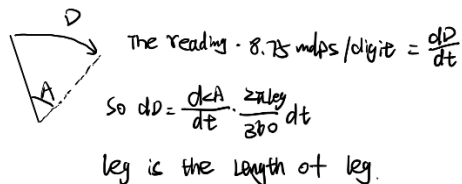 D
A
The reading · 8.75 mdps/digit = dD/dt
So dD = d∠A/dt · 2πleg/360 dt
leg is the length of leg.